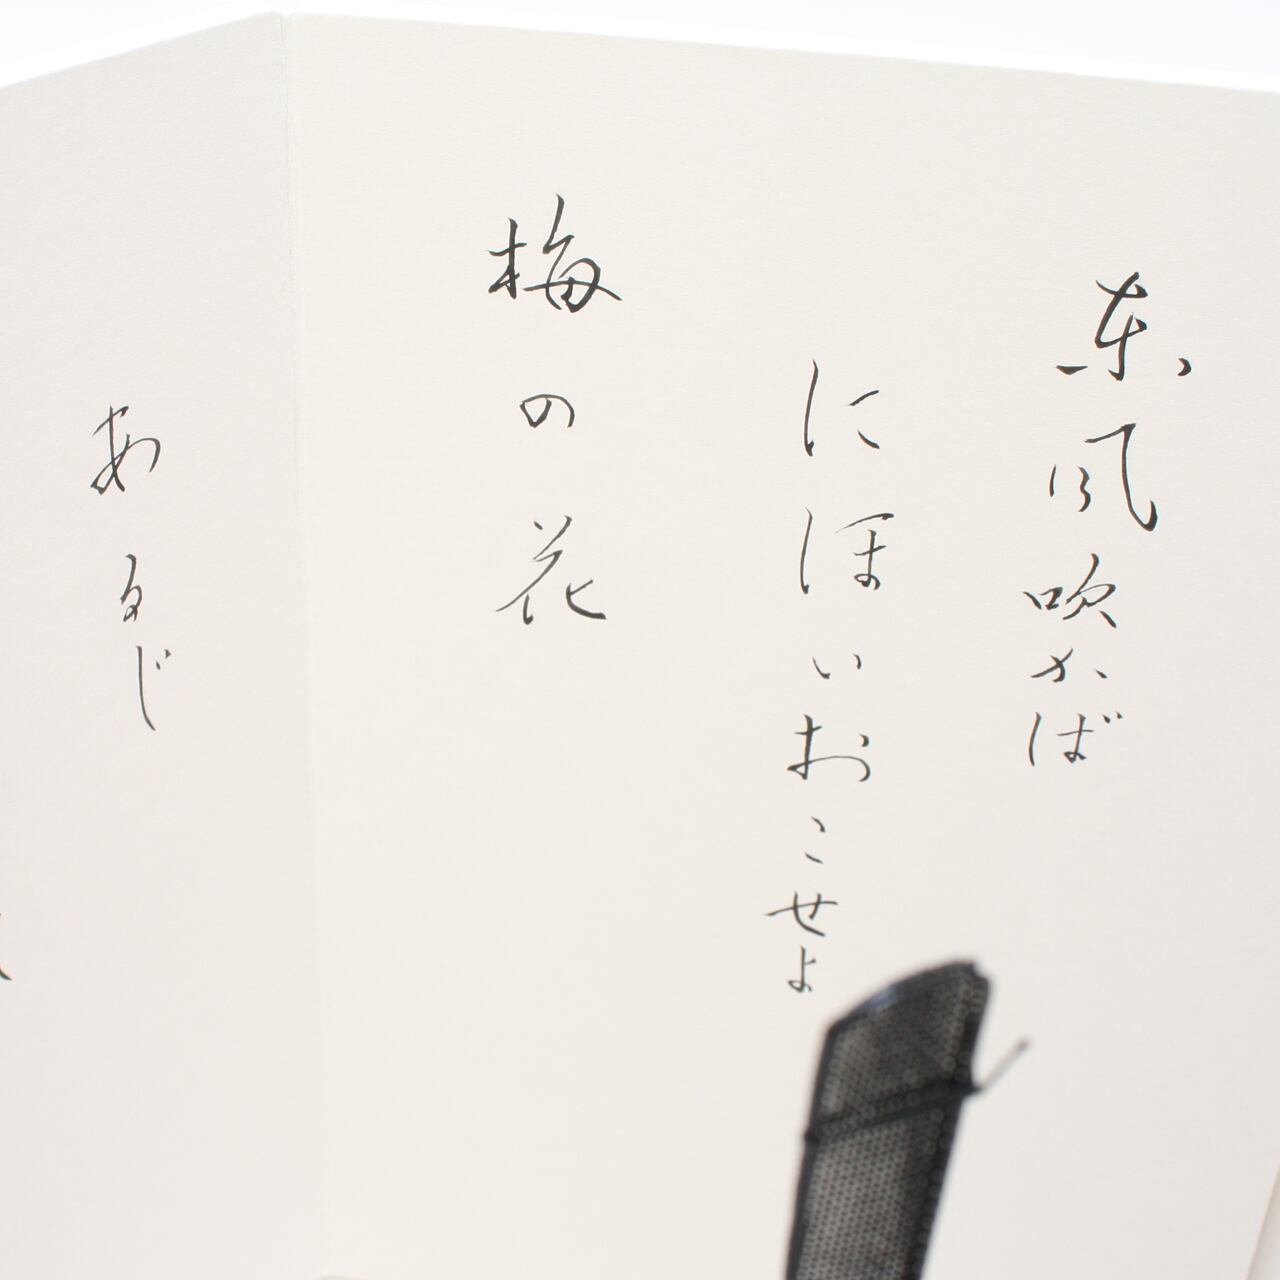 東風吹かば
にほいおこせよ
梅の花
あるじ